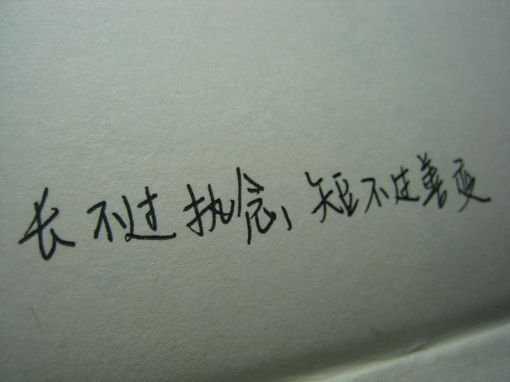 长不过执念,短不过善变